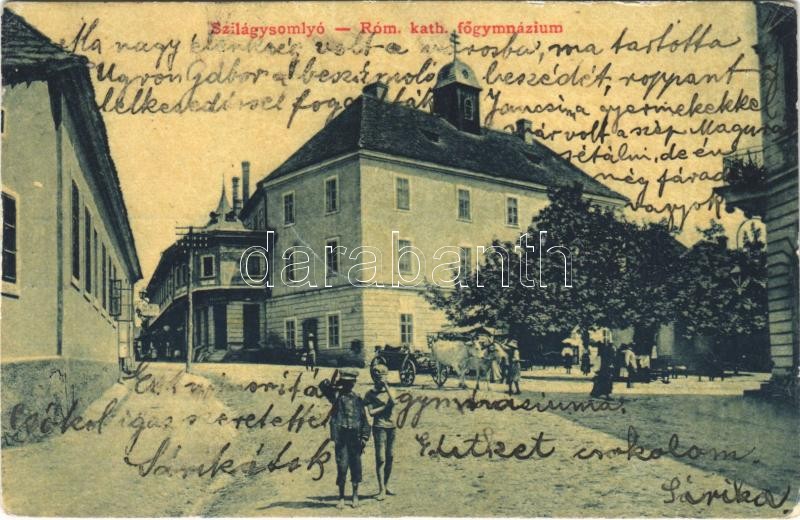 Szilágysomlyó — Róm. kath. főgymnázium
Ma nagy élénkség volt a városba, ma tartotta
Ugron Gábor a beszámoló beszédét, roppant
lelkesedéssel fogadták. Jancsi a gyermekekkel
már volt a szép Magurá
sétálni, de én
még fáradt
vagyok
darabanth
Ez a minoriták gymnasiuma.
Csókol igaz szeretettel
Sárikátok
Editket csokolom.
Sárika